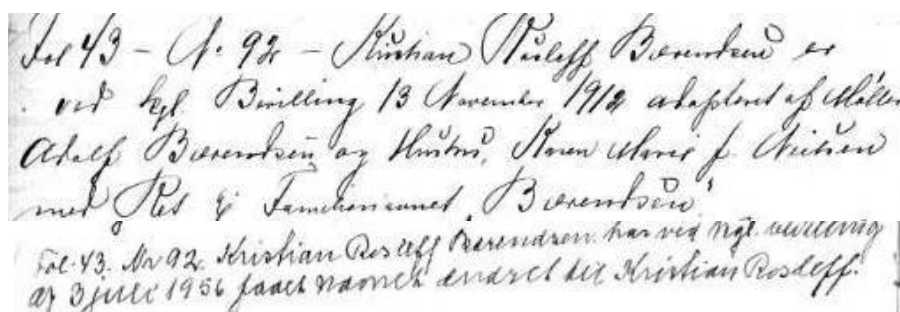 Fol 43 - No 92 - Kristian Rosleff Bærendsen er
ved kgl. Bevilling 13 November 1912 adopteret af Møller
Adolf Bærendsen og Hustru, Karen Marie f. Nielsen
med Ret til Familienavnet „Bærendsen"
Fol. 43. Nr 92. Kristian Rosleff Bærendsen har ved kgl. bevilling
af 3 juli 1956 faaet navnet ændret til Kristian Rosleff.